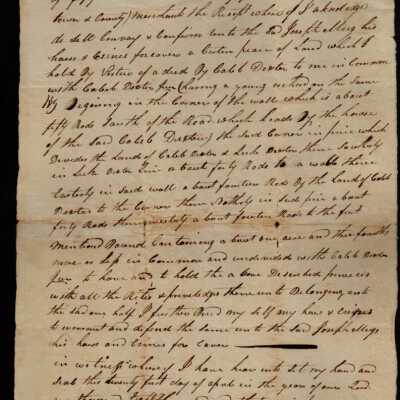 (Town & County) Merchant the Receipt whereof I aknoledge
do sell Convay & Confirm unto the Sd Joseph elleg his
haers & Eirnes forever a Certen peace of Land which I
hold By Virtue of a deed By Caleb Dexter to me in Common
with Caleb Dexter Jnr (having a young orchard on the Same
Begining in the Corner of the wall which is about
fifty Rods South of the Road which leads By the house
of the Sard Caleb Dexter) the Sard Corner in fince which
Devides the Land of Caleb Dexter & Luke Dexter thence
in Luke Dexter Line a bout forty Rods to a wall thence
Easterly in Sard wall a bout fourteen Rods By the Land of Caleb
Dexter to the Corner then Notholy in Sud fince a bout
forty Rods then westerly a bout fourteen Rods to the first
Mentiond Bound Containing a bout one acre and three fourths
more or less in Common and undevided with Caleb Dexter
Jnr to have and to hold the a bove Descrided premeses
with all the Rites & priveledges there unto Belonging unto
the Sd one half I further Bind my Self my haers &
to warrant and defend the Same unto the Sd Joseph elleg
his haers and Eirnes for Ever
in witness whareof I have hear unto Set my hand and
Seal this twenty first day of apral in the year of our Lord